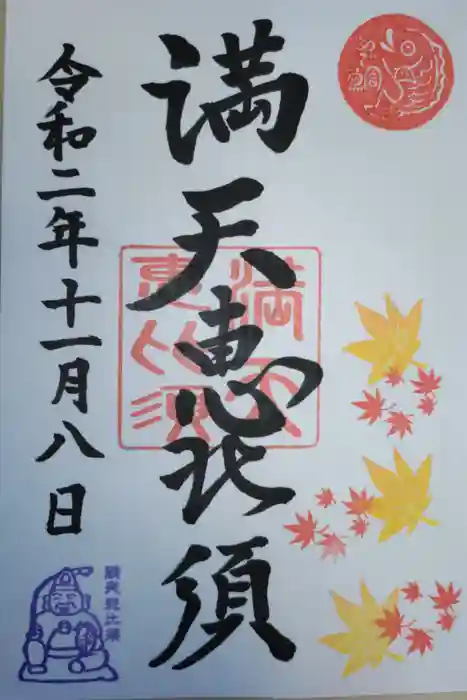 満天恵比須
令和二年十一月八日
満天
恵比須